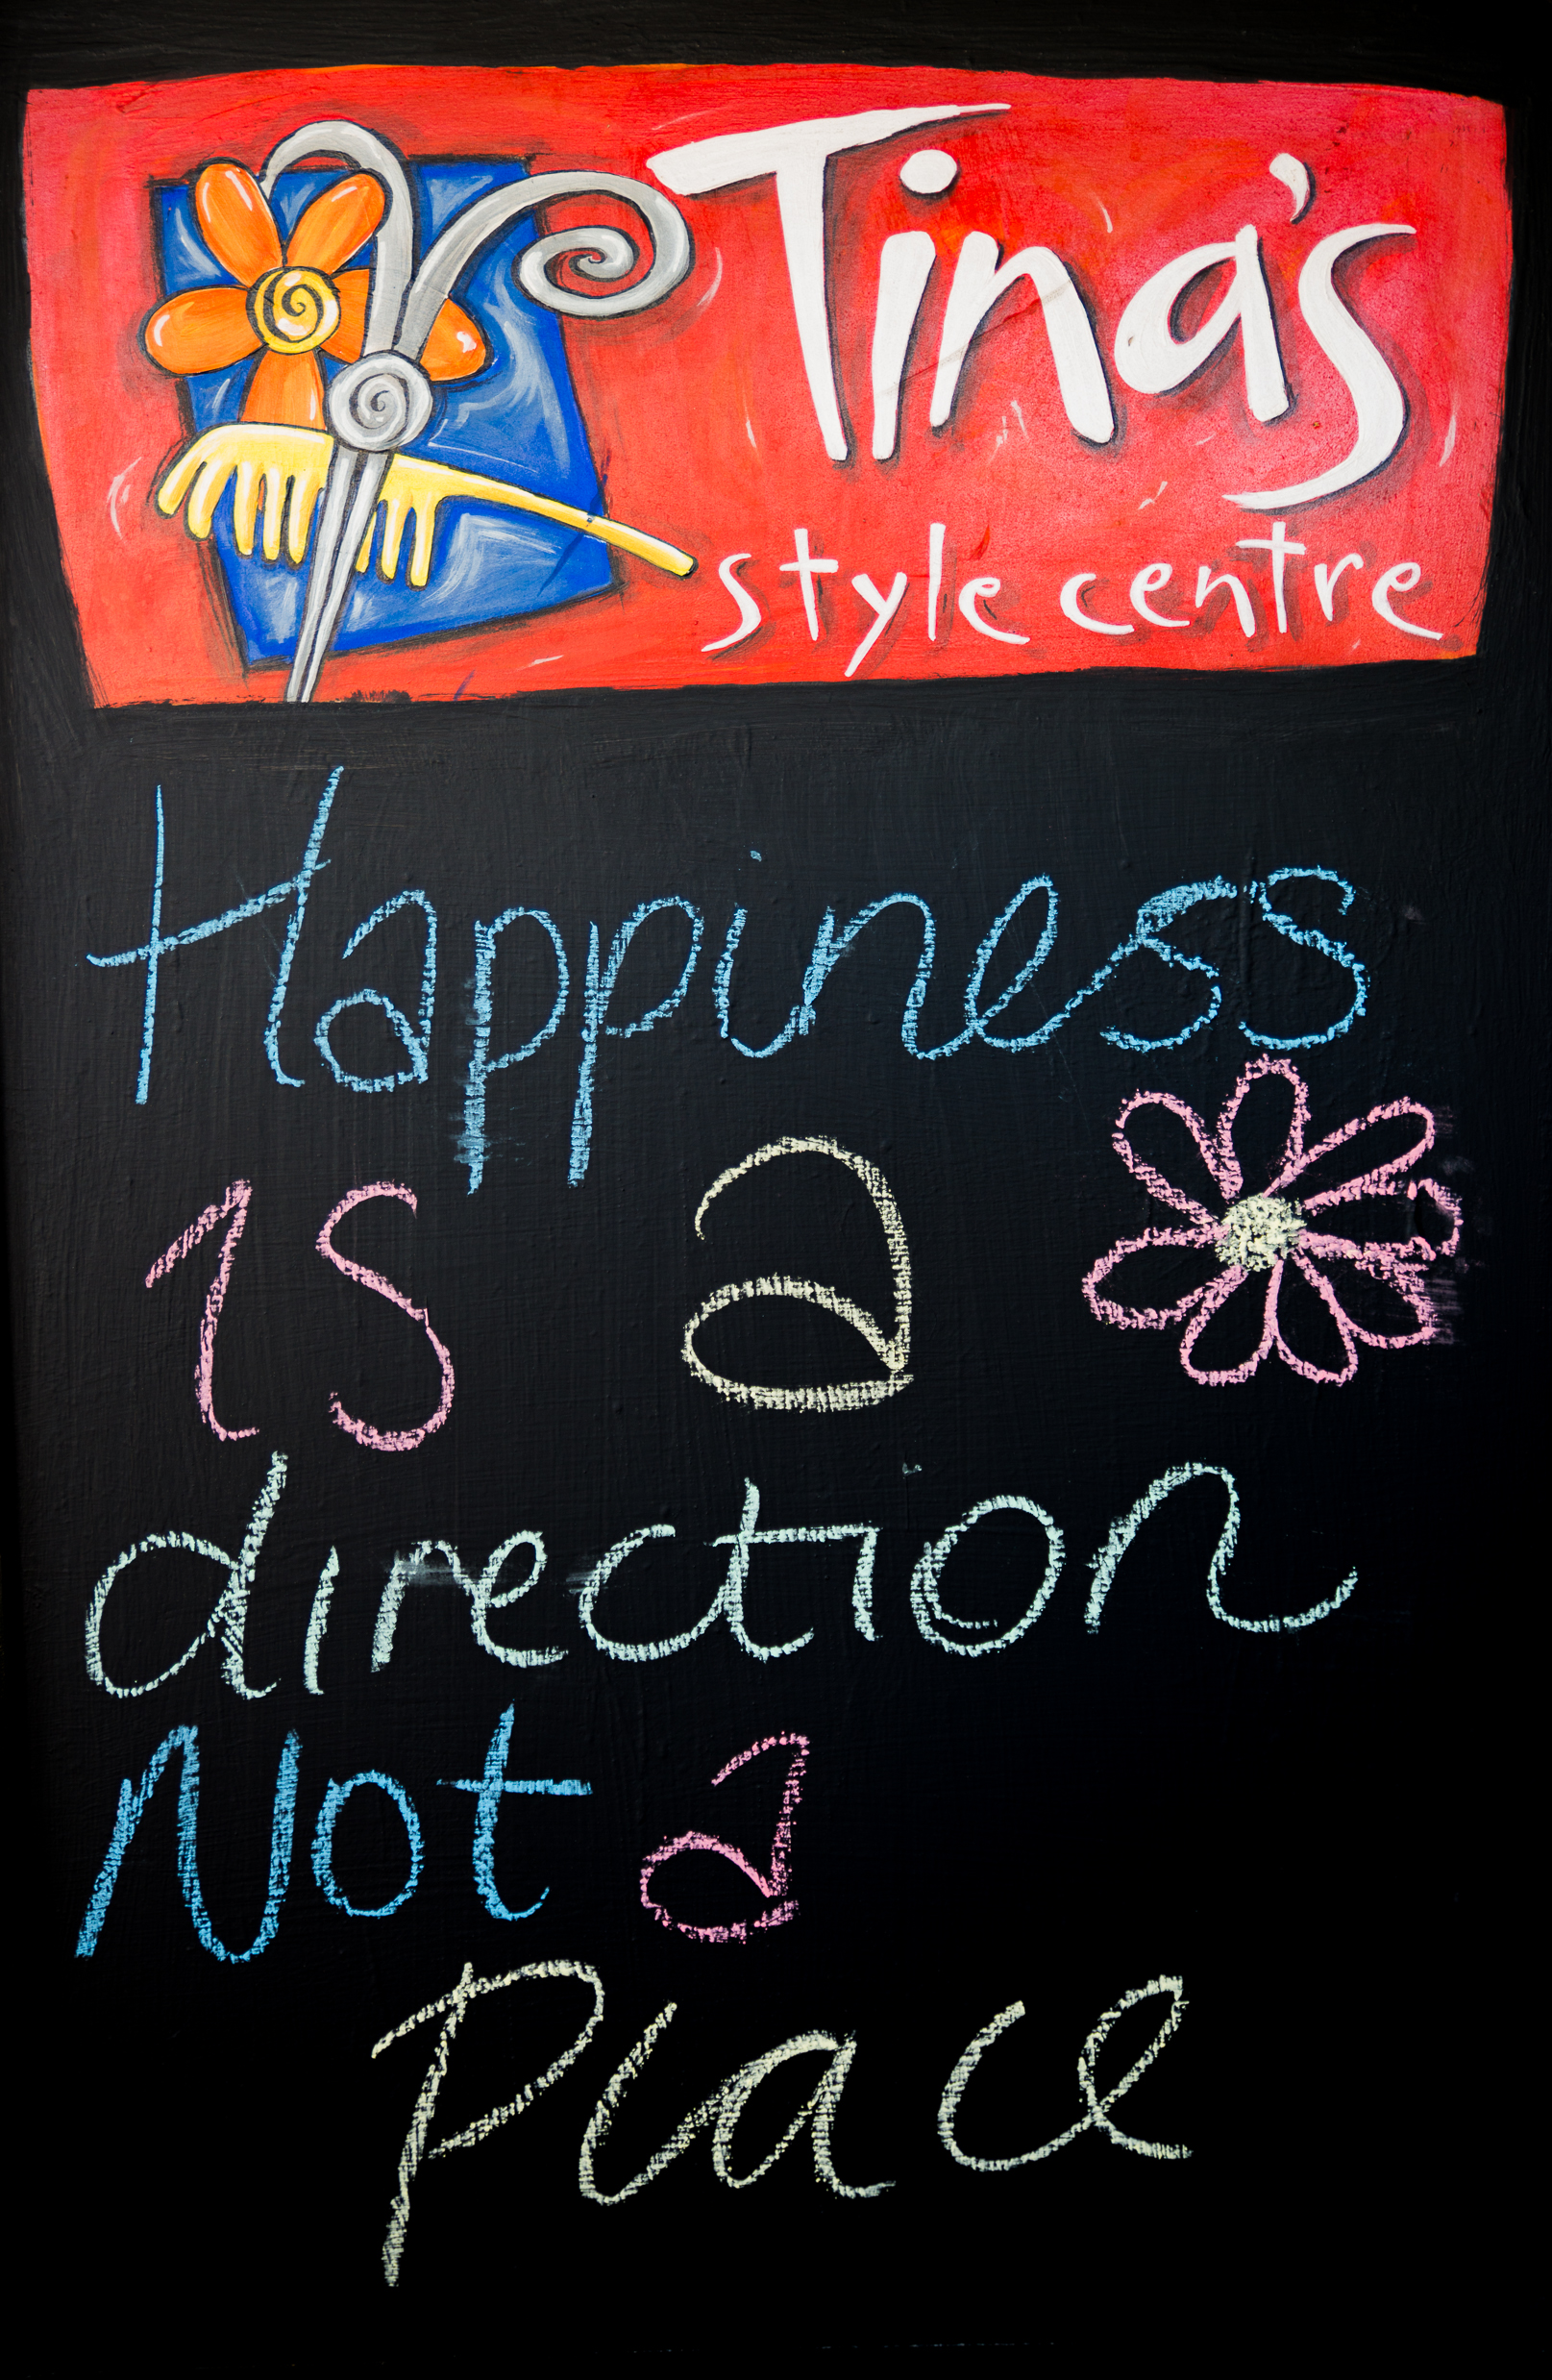 Tina's
style centre
Happiness
is a
direction
Not a
Place